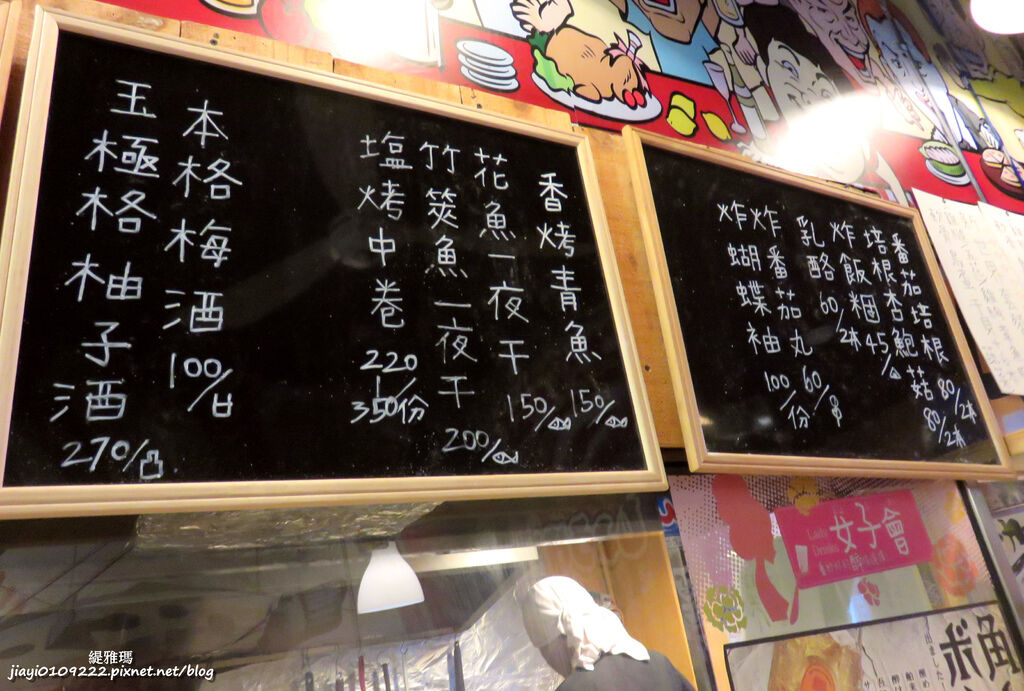 香烤青魚 150/
花魚一夜干 150/
竹筴魚一夜干 200/
塩烤中卷 220
350份
本格梅酒 100/
玉極格柚子酒 270/
番茄培根 80/本
培根杏鮑菇 80/本
炸飯糰 45/
乳酪 60/本
炸番茄丸 60/串
炸蝴蝶袖 100/份
女子會
Lady
Drinks
緹雅瑪
jiayi0109222.pixnet.net/blog